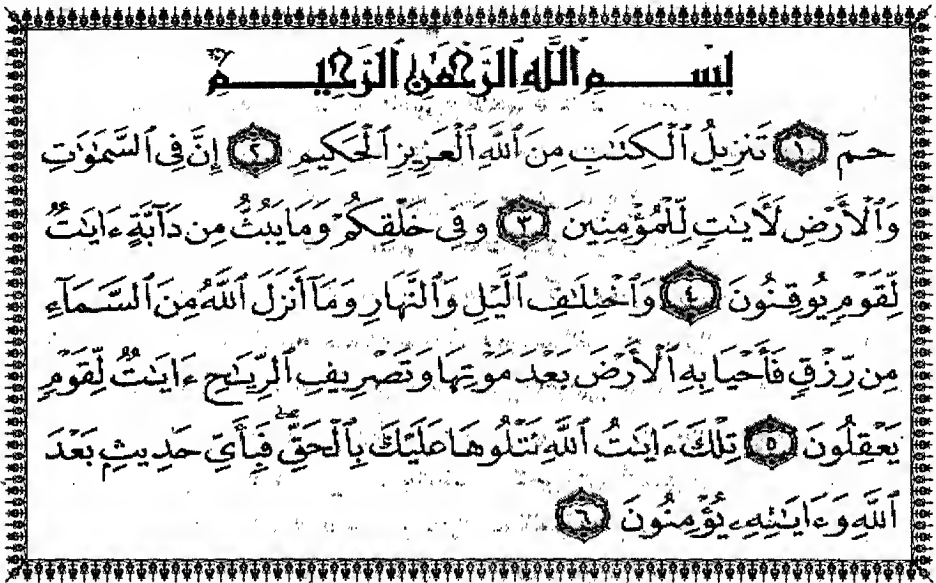 بِسْمِ ٱللَّهِ ٱلرَّحْمَٰنِ ٱلرَّحِيمِ
حمٓ ١ تَنزِيلُ ٱلْكِتَٰبِ مِنَ ٱللَّهِ ٱلْعَزِيزِ ٱلْحَكِيمِ ٢ إِنَّ فِى ٱلسَّمَٰوَٰتِ
وَٱلْأَرْضِ لَءَايَٰتٍ لِّلْمُؤْمِنِينَ ٣ وَفِى خَلْقِكُمْ وَمَا يَبُثُّ مِن دَآبَّةٍ ءَايَٰتٌ
لِّقَوْمٍ يُوقِنُونَ ٤ وَٱخْتِلَٰفِ ٱلَّيْلِ وَٱلنَّهَارِ وَمَآ أَنزَلَ ٱللَّهُ مِنَ ٱلسَّمَآءِ
مِن رِّزْقٍ فَأَحْيَا بِهِ ٱلْأَرْضَ بَعْدَ مَوْتِهَا وَتَصْرِيفِ ٱلرِّيَٰحِ ءَايَٰتٌ لِّقَوْمٍ
يَعْقِلُونَ ٥ تِلْكَ ءَايَٰتُ ٱللَّهِ نَتْلُوهَا عَلَيْكَ بِٱلْحَقِّ ۖ فَبِأَىِّ حَدِيثٍۭ بَعْدَ
ٱللَّهِ وَءَايَٰتِهِۦ يُؤْمِنُونَ ٦